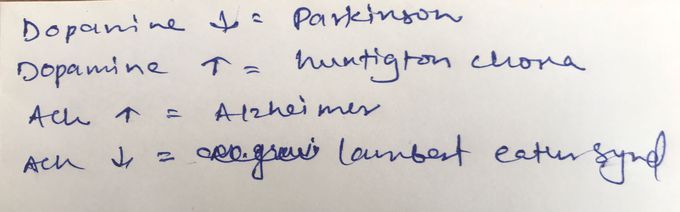 Dopamine ↓ = Parkinson
Dopamine ↑ = huntigton chorea
Ach ↑ = Alzheimer
Ach ↓ = lambert eatun synd